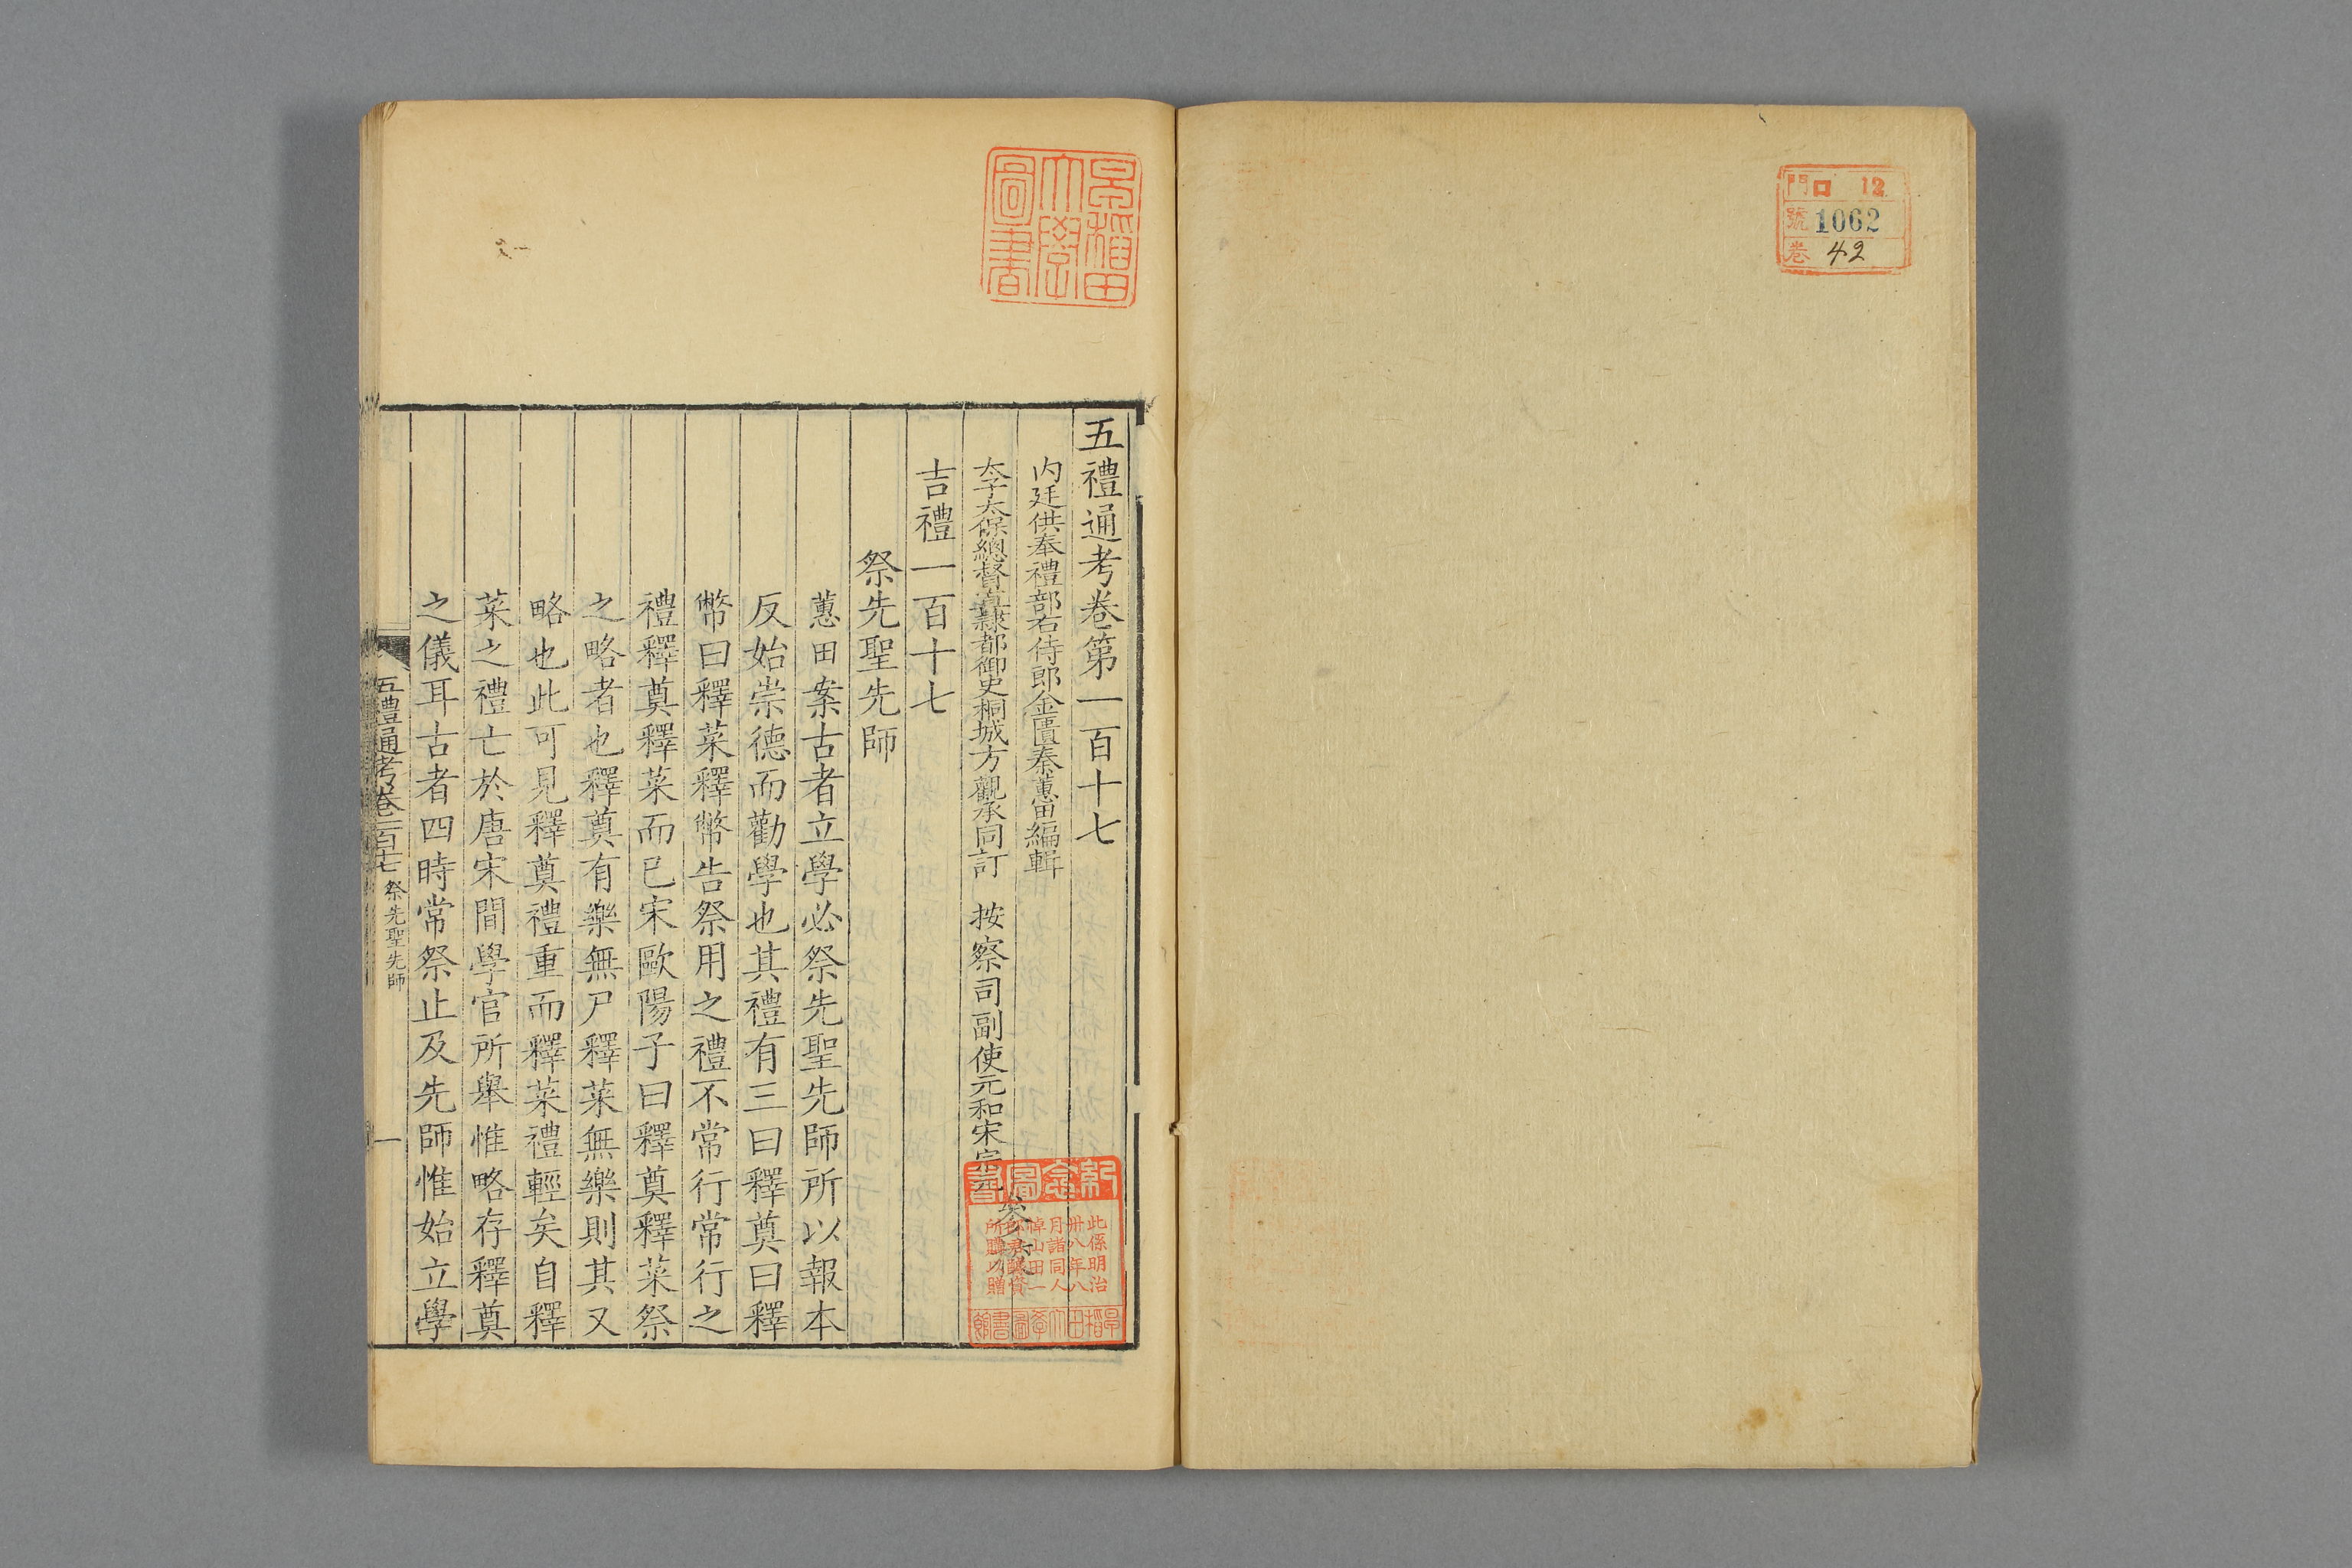 門 ロ 12
號 1062
卷 42
早稲田
大學
圖書
五禮通考卷第一百十七
内廷供奉禮部右侍郎金匱秦蕙田編輯
太子太保總督直隸都御史桐城方觀承同訂 按察司副使元和宋宗元參校
吉禮一百十七
祭先聖先師
蕙田案古者立學必祭先聖先師所以報本
反始崇德而勸學也其禮有三曰釋奠曰釋
幣曰釋菜釋幣告祭用之禮不常行常行之
禮釋奠釋菜而已宋歐陽子曰釋奠釋菜祭
之略者也釋奠有樂無尸釋菜無樂則其又
略也此可見釋奠禮重而釋菜禮輕矣自釋
菜之禮亡於唐宋間學官所舉惟略存釋奠
之儀耳古者四時常祭止及先師惟始立學
五禮通考卷一百十七 祭先聖先師 一
紀念圖書
此係明治
卅八年八
月諸同人
悼山田一
郎君醵貲
所購以贈
早稲田大學圖書館